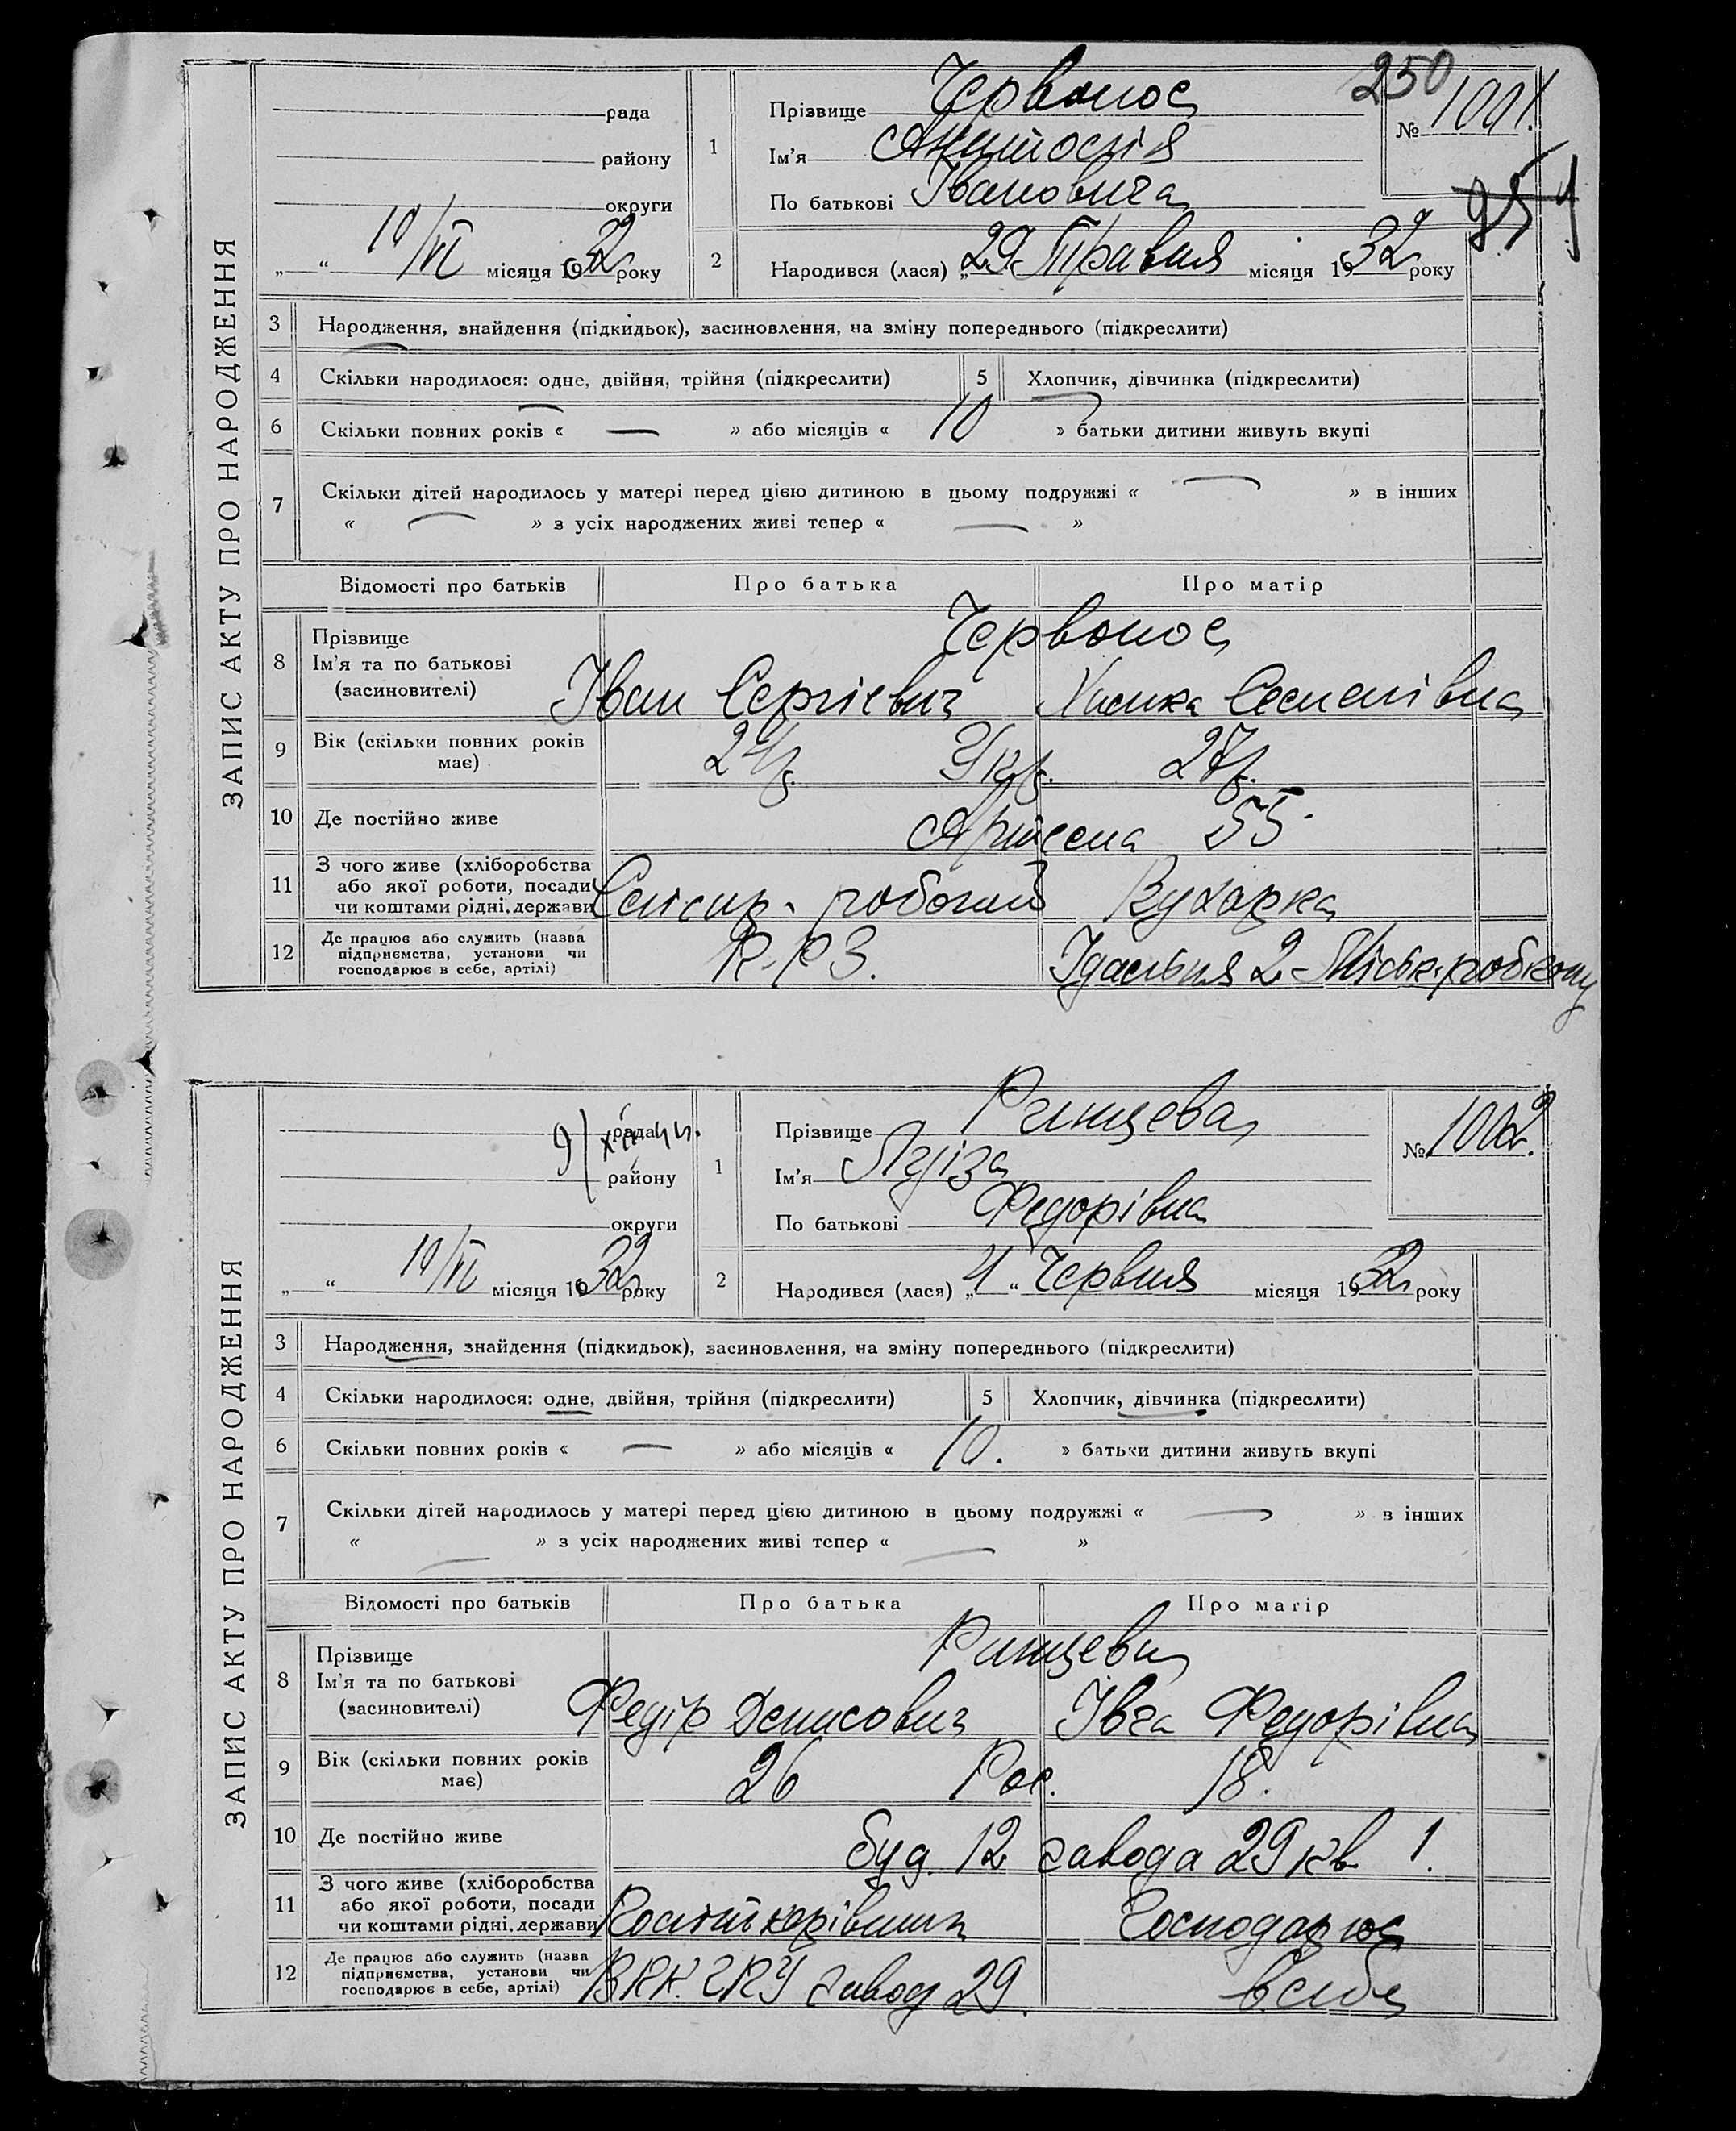 250
ЗАПИС АКТУ ПРО НАРОДЖЕННЯ
рада
району
округи
„ “ 10/VI місяця 1932 року
1
Прізвище Червонос
Ім'я Анатолія
По батькові Івановича
№ 1001.
2
Народився (лася) „29 Травня місяця 1932 року
3 Народження, знайдення (підкидьок), засиновлення, на зміну попереднього (підкреслити)
4 Скільки народилося: одне, двійня, трійня (підкреслити)
5 Хлопчик, дівчинка (підкреслити)
6 Скільки повних років « — » або місяців « 10 » батьки дитини живуть вкупі
7 Скільки дітей народилось у матері перед цією дитиною в цьому подружжі « — » в інших
« — » з усіх народжених живі тепер « — »
Відомості про батьків Про батька Про матір
8 Прізвище
Ім'я та по батькові
(засиновителі)
Червонос
Іван Сергієвич
9 Вік (скільки повних років
має)
Укр. 27р.
10 Де постійно живе
Артема 55
11 З чого живе (хліборобства
або якої роботи, посади
чи коштами рідні, держави
Слюсар робочий Кухарка
12 Де працює або служить (назва
підприємства, установи чи
господарює в себе, артілі)
К.Р.З. Їдальня 2 Міськ.робкопу
ЗАПИС АКТУ ПРО НАРОДЖЕННЯ
рада
району
округи
„ “ 10/VI місяця 1932 року
1
Прізвище Ринцева
Ім'я Луіза
По батькові Федорівна
№ 1002.
2
Народився (лася) „4“ Червня місяця 1932 року
3 Народження, знайдення (підкидьок), засиновлення, на зміну попереднього (підкреслити)
4 Скільки народилося: одне, двійня, трійня (підкреслити)
5 Хлопчик, дівчинка (підкреслити)
6 Скільки повних років « — » або місяців « 10. » батьки дитини живуть вкупі
7 Скільки дітей народилось у матері перед цією дитиною в цьому подружжі « — » в інших
« — » з усіх народжених живі тепер « — »
Відомості про батьків Про батька Про матір
8 Прізвище
Ім'я та по батькові
(засиновителі)
Ринцеви
Федір Денисович Івга Федорівна
9 Вік (скільки повних років
має)
26 Рос. 18.
10 Де постійно живе
буд. 12 завода 29 кв 1.
11 З чого живе (хліборобства
або якої роботи, посади
чи коштами рідні, держави
Господарює
12 Де працює або служить (назва
підприємства, установи чи
господарює в себе, артілі)
завод 29. в себе